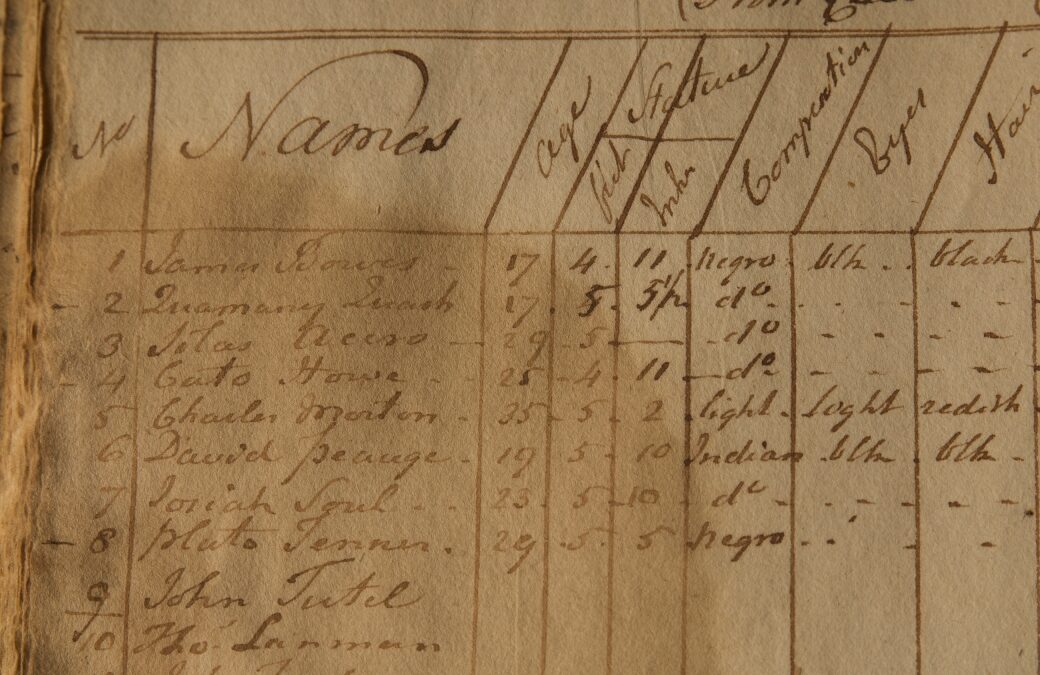 (From
No Names Age Stature Complection Eyes Hair
feet Inhs
1 James Bowes - 17 4 11 negro blk black -
- 2 Quamany Quash 17 5 5½ do - - - -
3 Silas Accro - 29 5 — do - - - -
- 4 Cato Howe - 25 4 11 do - - - -
5 Charles Morton 35 5 2 light light redish
6 David Peauge - 19 5 10 Indian blk blk -
7 Josiah Soul - 23 5 10 do - - - -
- 8 Pluto Tenner - 29 5 5 negro - - -
9 John Tutel
10 Tho. Lanman